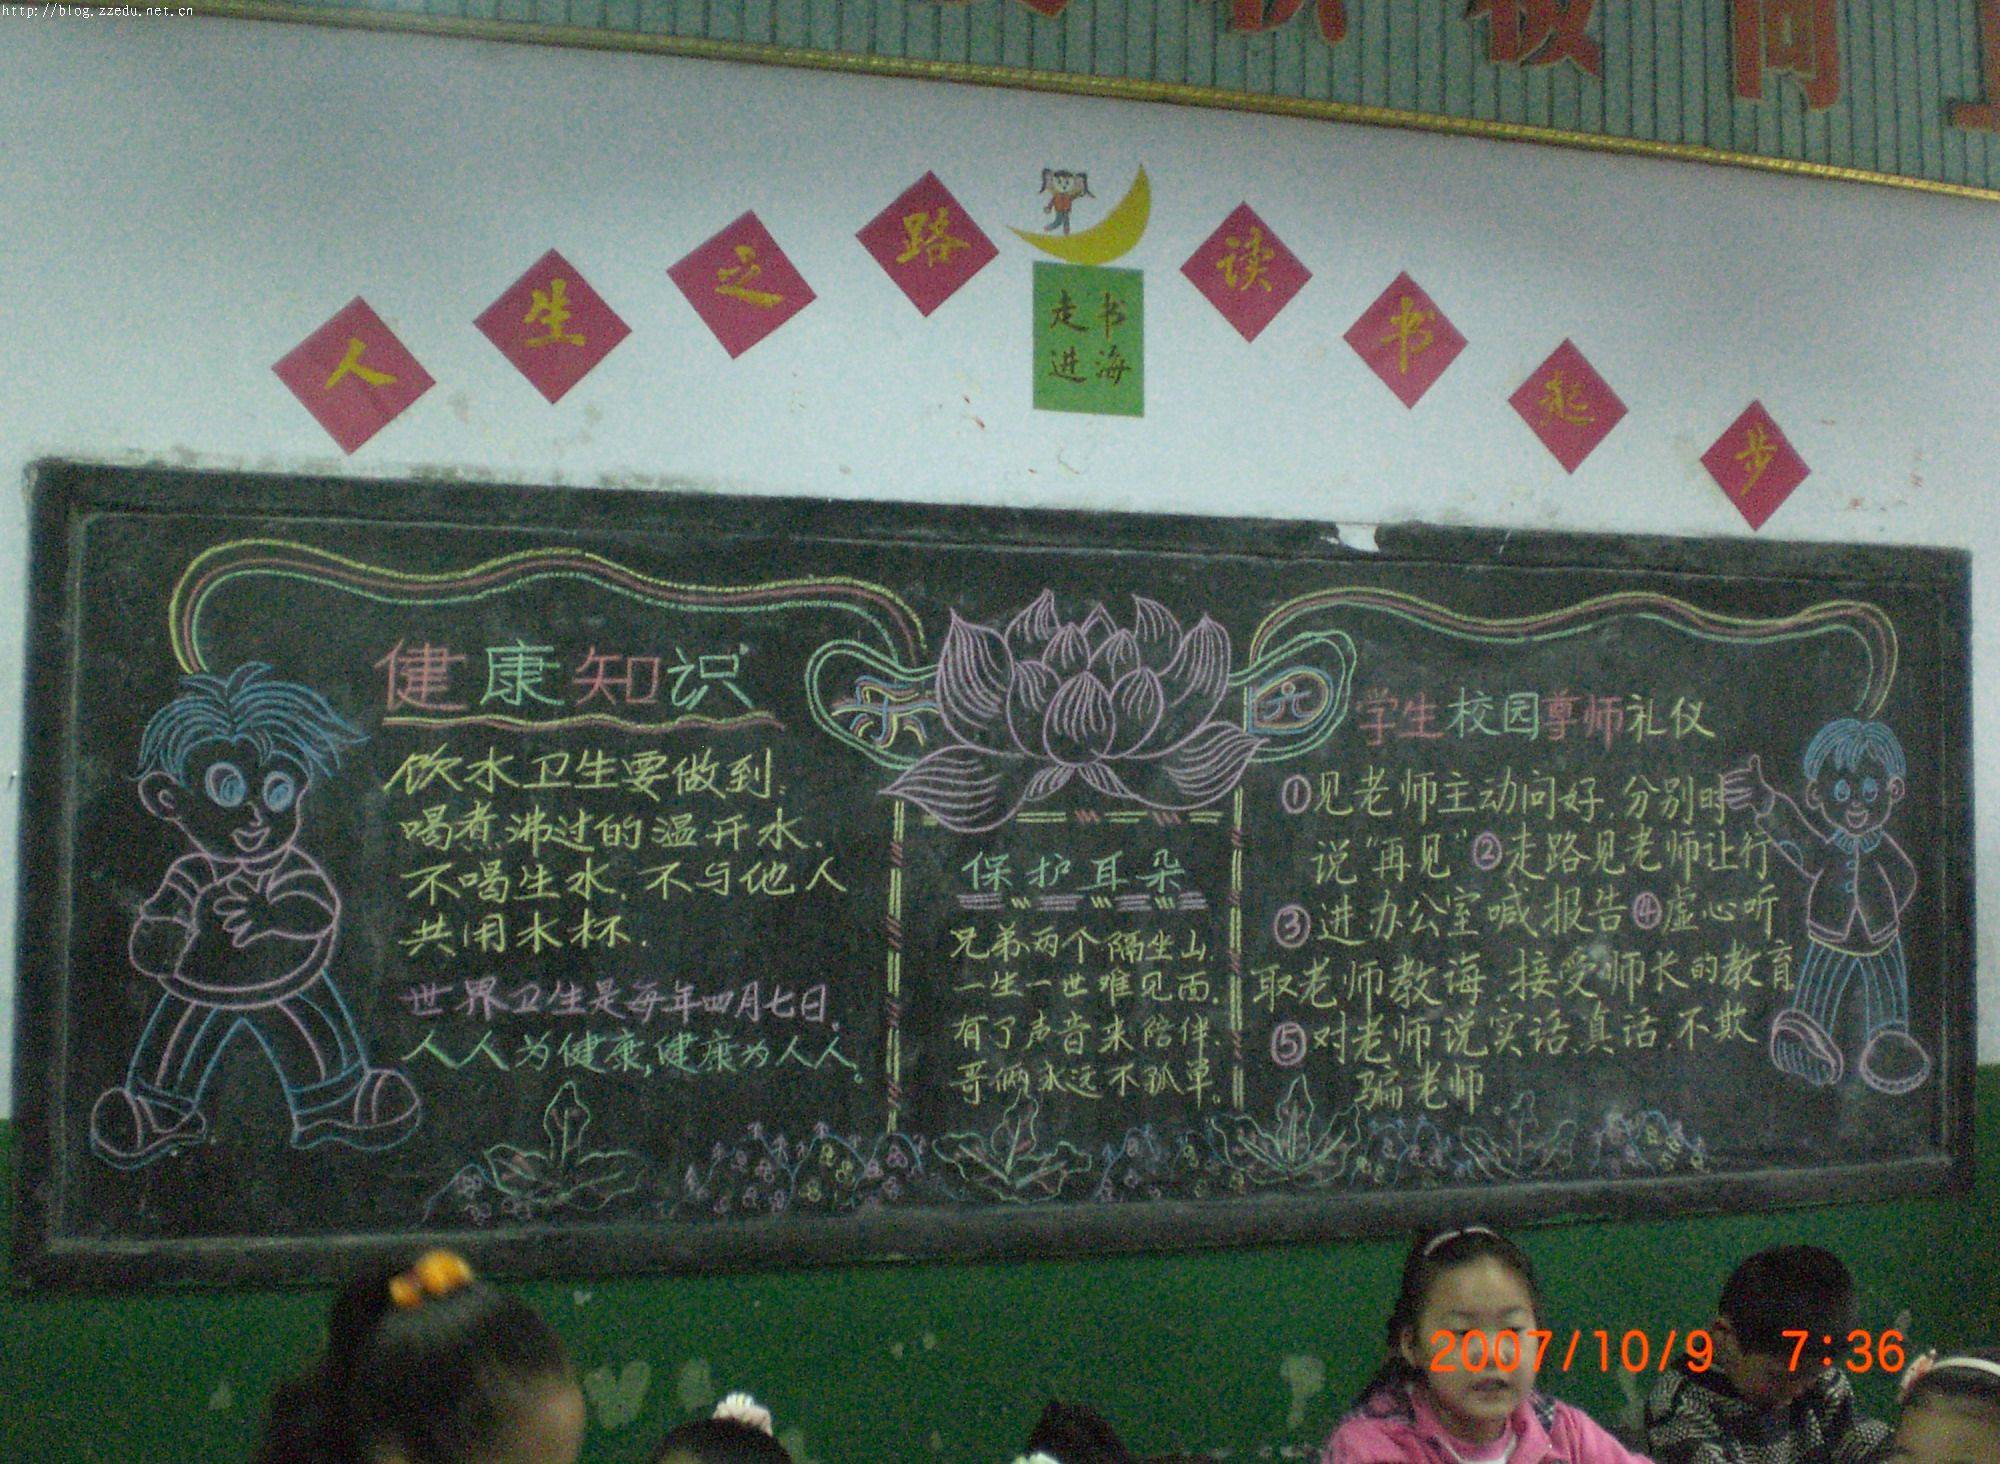 http://blog.zzedu.net.cn
人生之路
走进
书海
读书起步
健康知识
饮水卫生要做到:
喝煮沸过的温开水.
不喝生水.不与他人
共用水杯.
世界卫生是每年四月七日.
人人为健康,健康为人人。
乐
保护耳朵
兄弟两个隔坐山.
一生一世难见面.
有了声音来陪伴.
哥俩永远不孤单。
学生校园尊师礼仪
①见老师主动问好.分别时
说“再见”②走路见老师让行
③进办公室喊报告④虚心听
取老师教诲.接受师长的教育
⑤对老师说实话、真话.不欺
骗老师。
2007/10/9 7:36